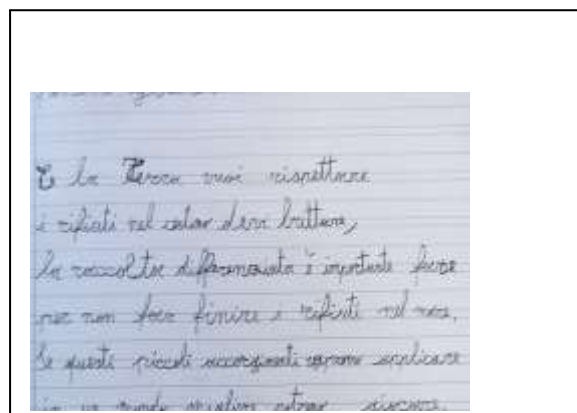 la Terra vuoi rispettare
i rifiuti nel devi buttare,
la raccolta differenziata è importante fare
per non far finire i rifiuti nel mare.
Se questi piccoli accorgimenti sapremo applicare
in un mondo migliore potremo